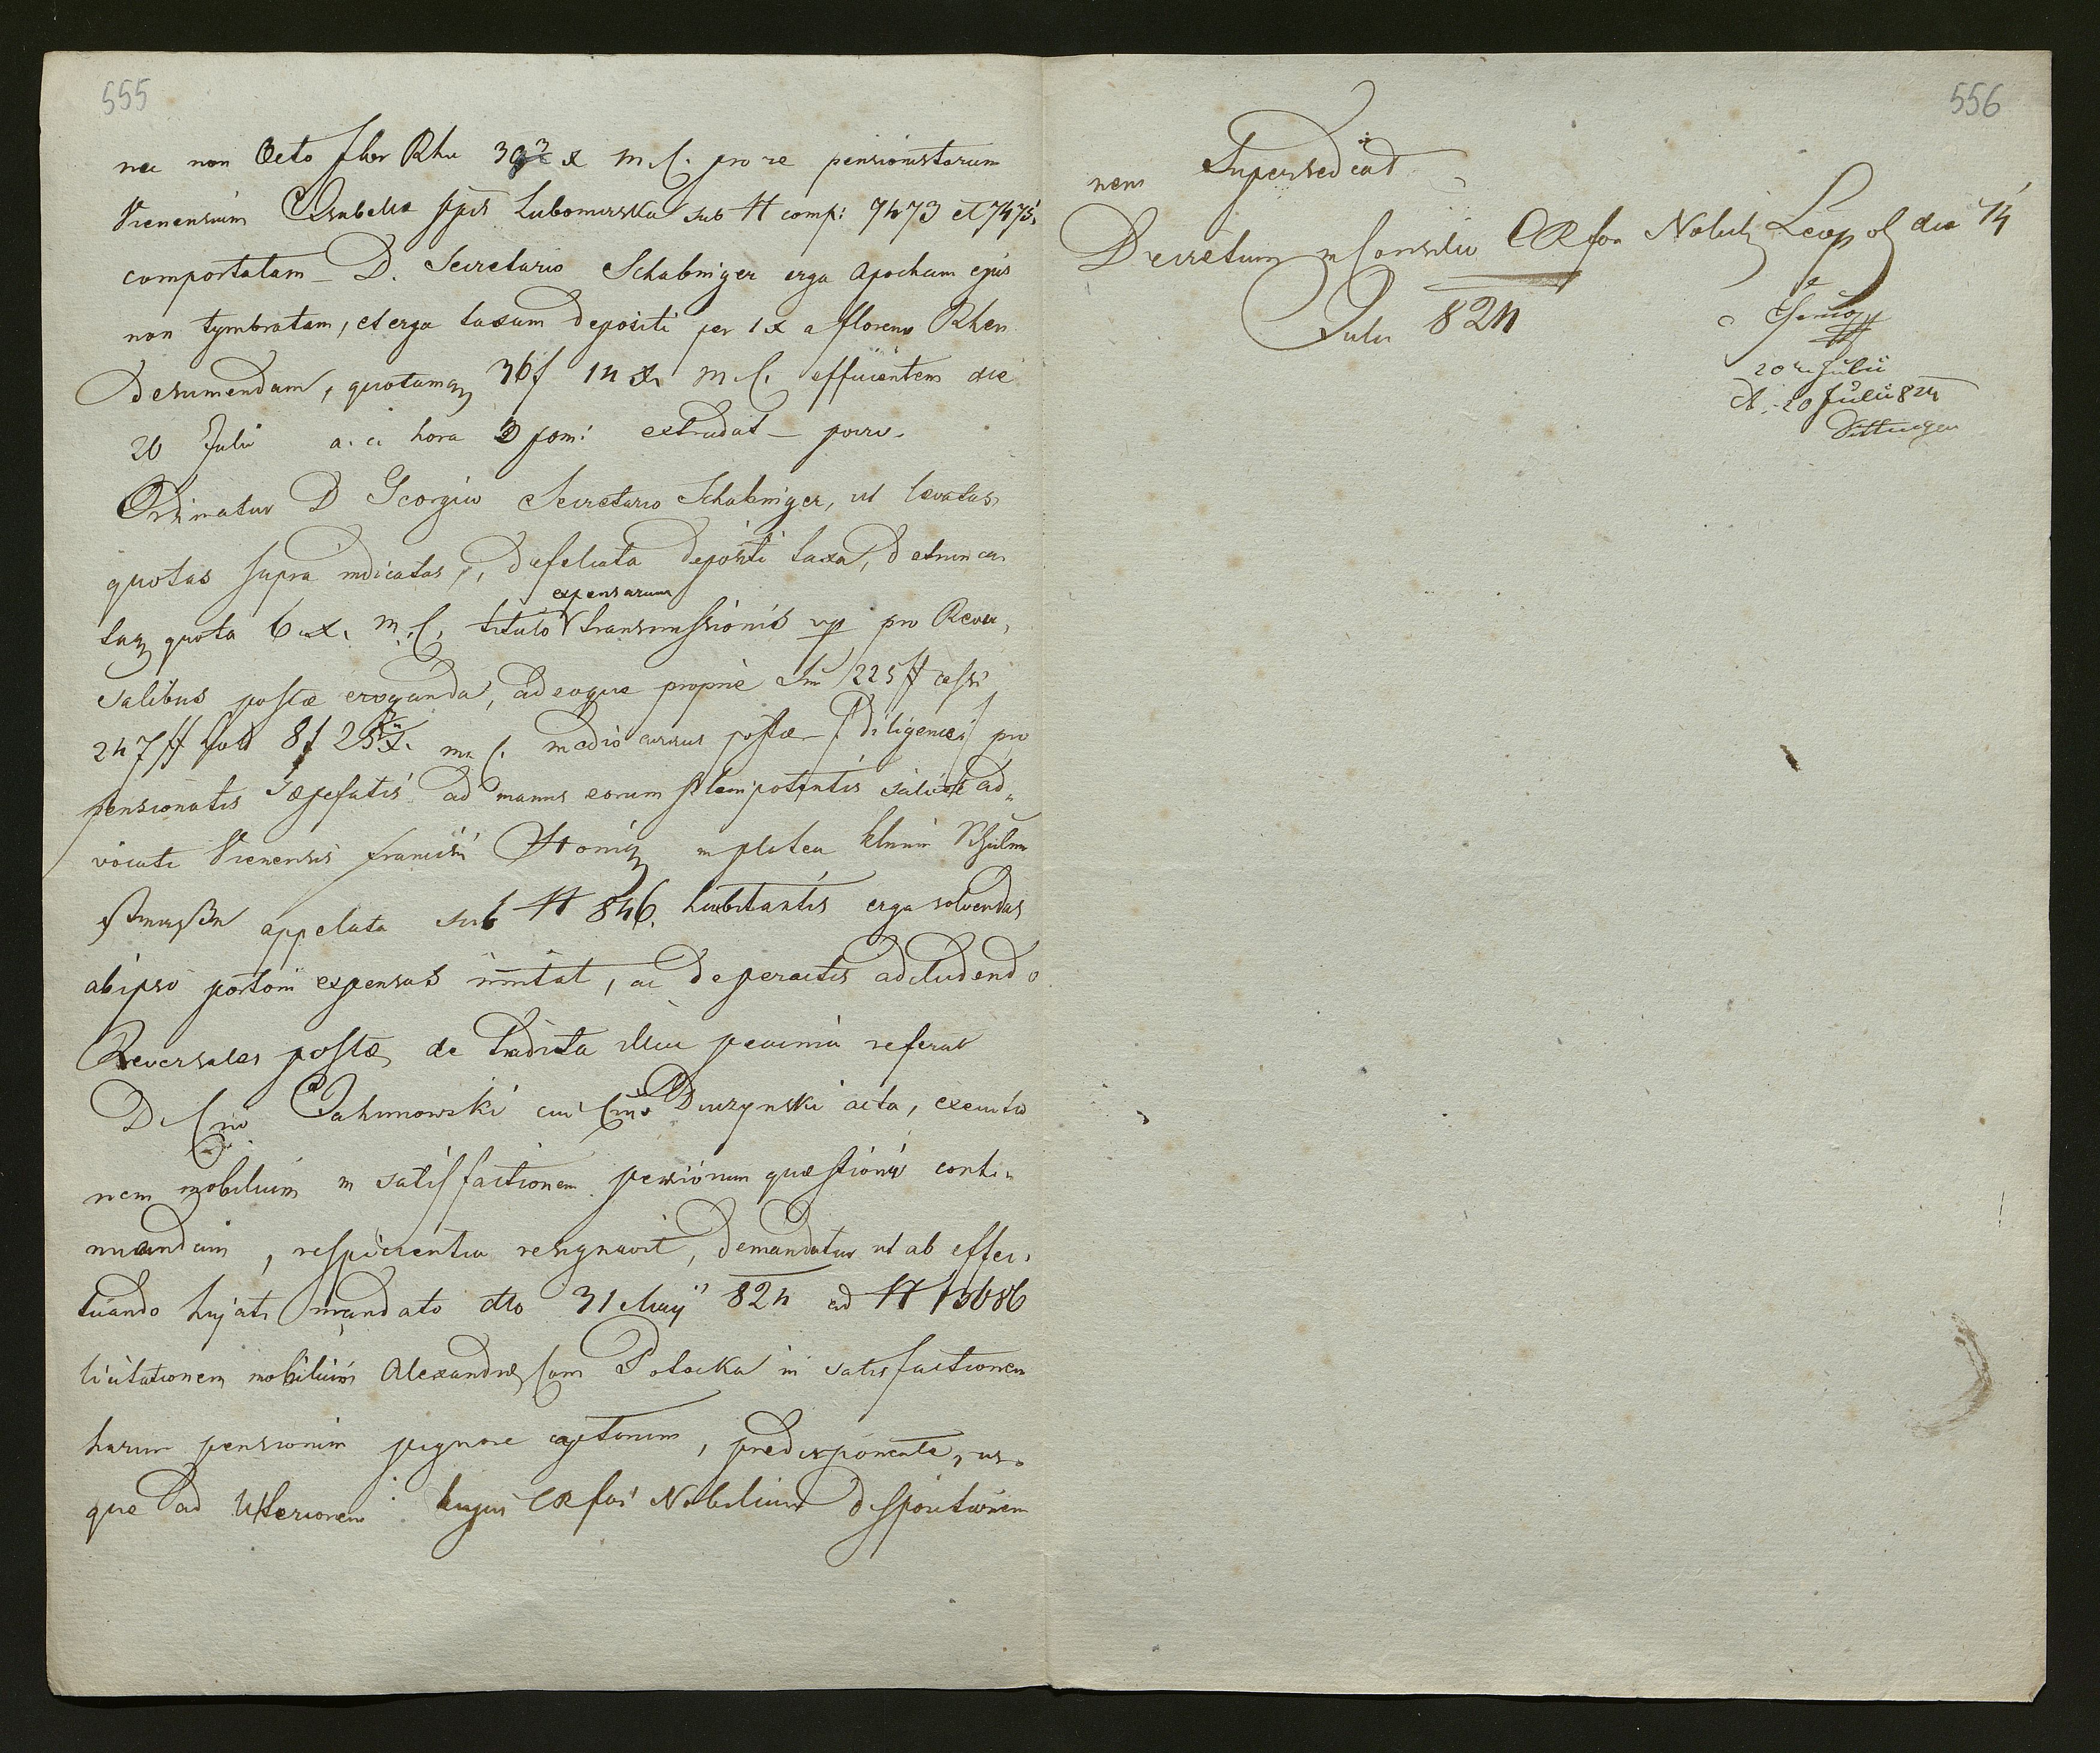 555
nec non Octo flor Rhn 30 x m.C. pro re pensionistarum
Vienensium Isabella Lubomirska sub N comp: 7473 et 7475
comportatam – D. Secretario Schabinger erga apocham ejus
non tymbratam, et erga taxam depositi per 1 x a floreno Rhen
desumendam, quotamq 36 f 14 x m.C. efficientem die
20 Julii a. c. hora 3 pom: extradat – porro.
Ordinatur D Georgio Secretario Schabinger, ut levatas
quotas supra indicatas, defalcata depositi taxa, detrunca
taq quota 6 x. m.C. titulo expensarum transmissionis pro Rever,
salibus postae eroganda, adeoque proprie 225 ff
247 ff 8 f m C. medio cursus postae / Diligence / pro
pensionatis saepefatis ad manus eorum plenipotentis ad„
vocati Vienensis Francisci in platea
appelata sub N 846. habitantis erga solvendas
ab ipso portorii expensas mittat, ac de peractis adcludendo
Reversales postae de tradita illuc pecunia referat
D. Jachimowski cui acta, executio
nem mobilium in satisfactionem pensionum quaestionis conti„
nuandam, respicientia resignavit, demandatur ut ab effec„
tuando hujati mandato dto 31 Maij 824 ad N 13686
licitationem mobilium Alexandrae Com Potocka in satisfactionem
harum pensionum pignore captorum, us„
que ad ulteriorem hujus CR fori Nobilium dispositionem
556
nem Supersedeat
Decretum in Consilio CR fori Nobil Leopol die 14
Julii 824
20 Julii
20 Julii 824